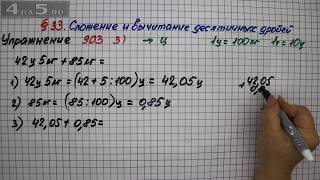 4RA5.RU
§33. Сложение и вычитание десятичных дробей
Упражнение 903 3) → ц 1ц=100кг 1т=10ц
42ц5кг + 85кг =
1) 42ц5кг = (42 + 5:100)ц = 42,05ц
2) 85кг = (85:100)ц = 0,85ц
3) 42,05 + 0,85 =
+ 42,05
0,8